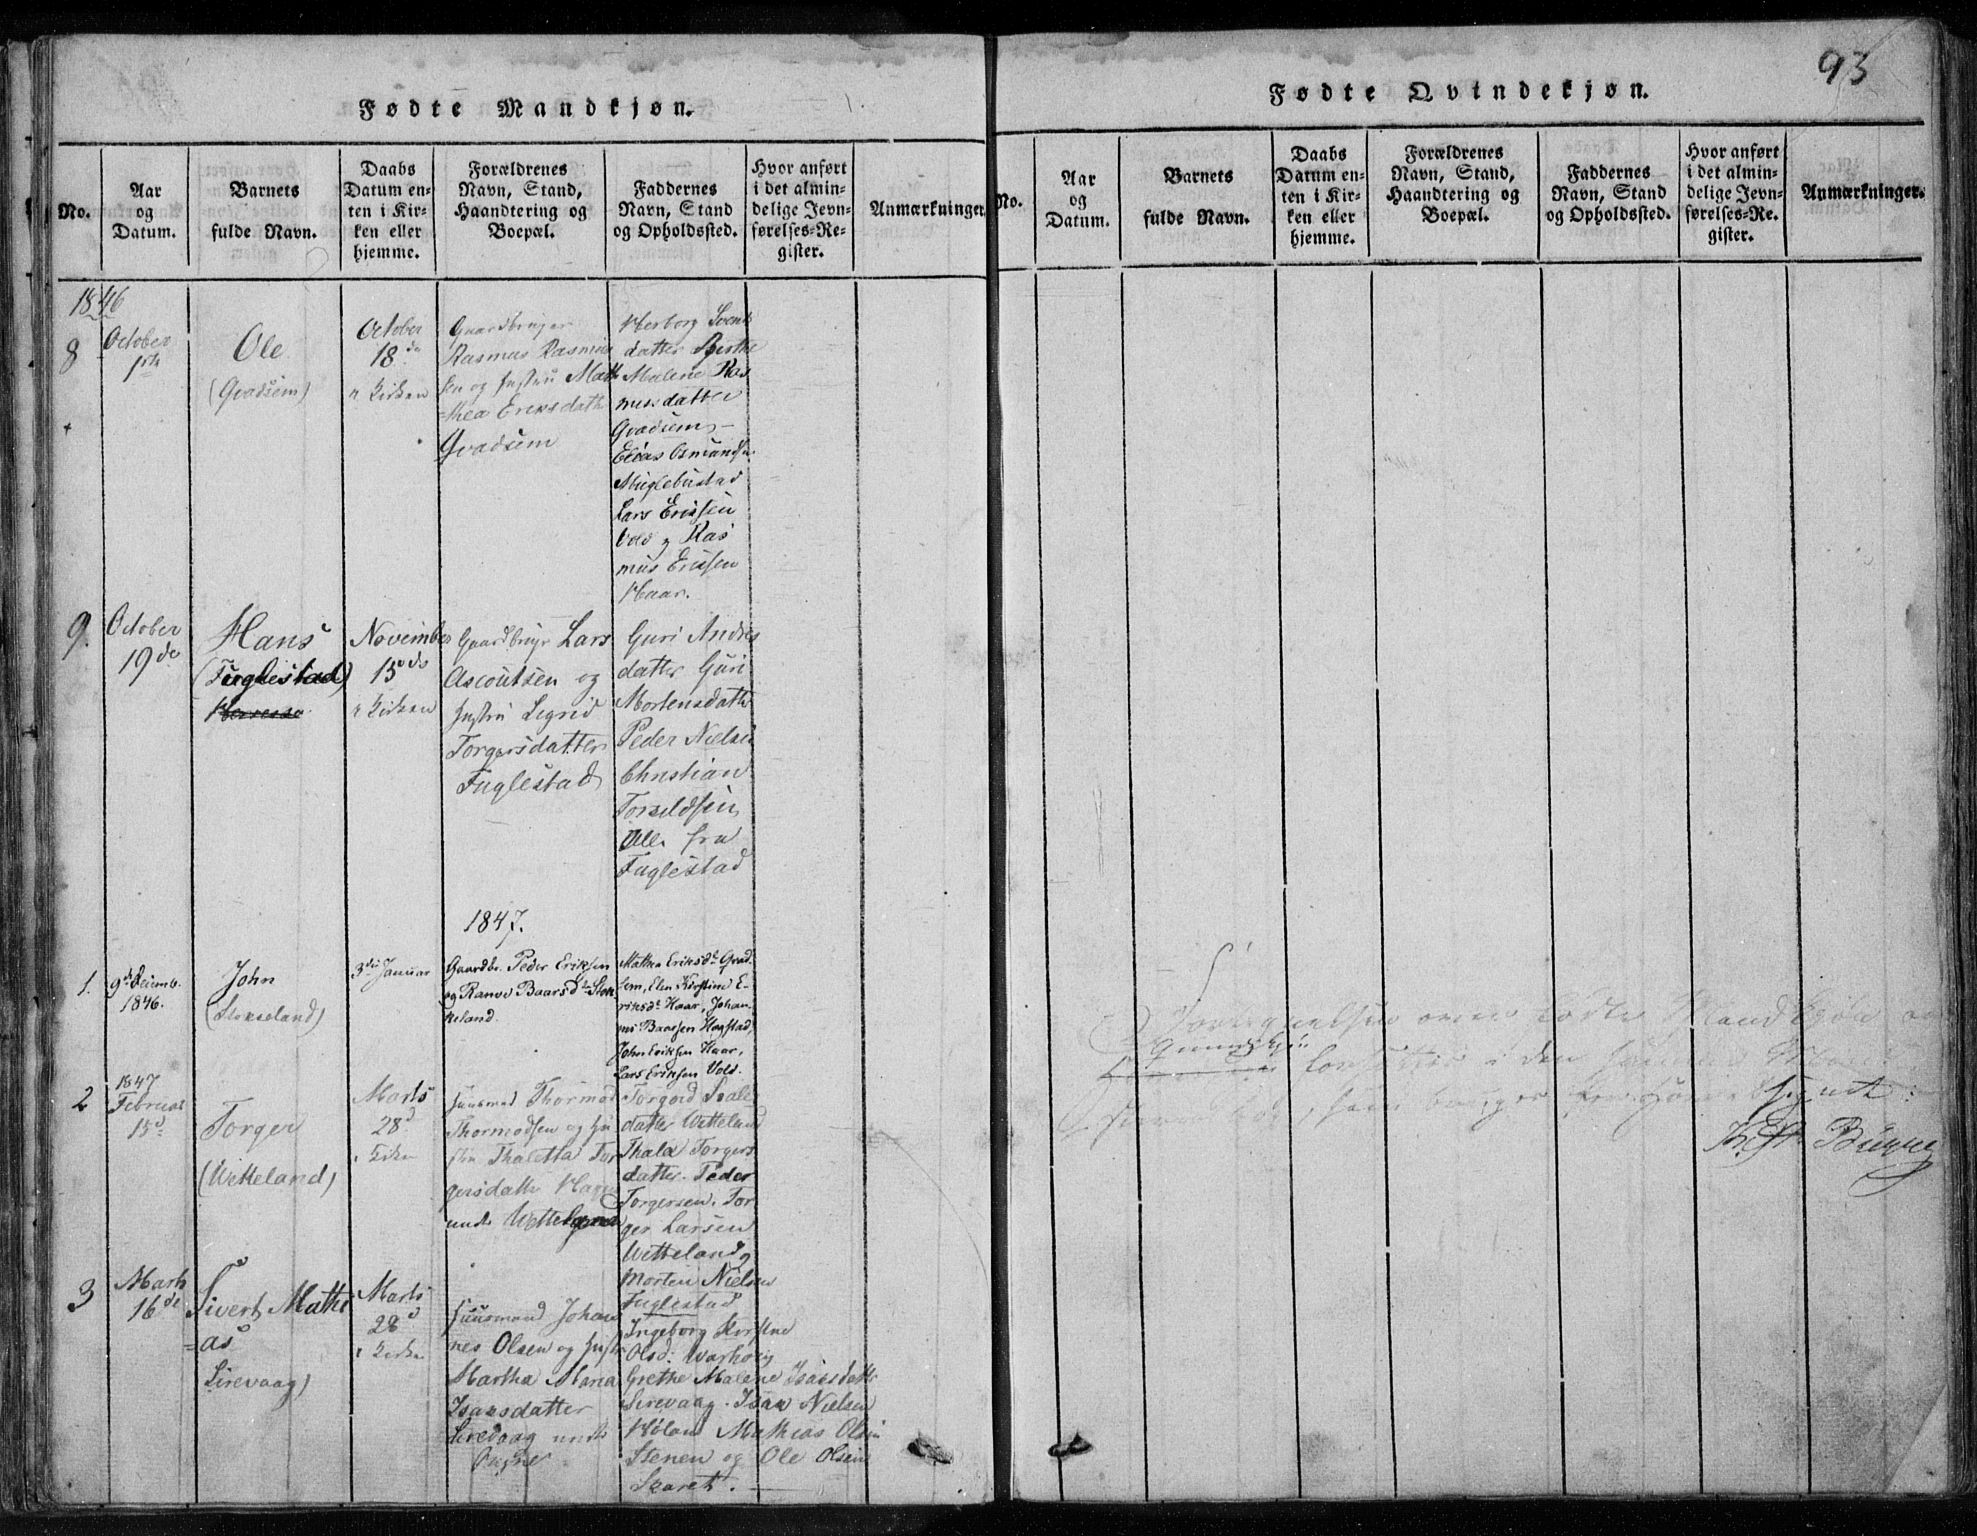 93
Fødte Mandkjøn.
No.
Aar
og
Datum.
Barnets
fulde Navn.
Daabs
Datum en-
ten i Kir-
ken eller
hjemme.
Forældrenes
Navn, Stand,
Haandtering og
Boepæl.
Faddernes
Navn, Stand
og Opholdssted.
Hvor anført
i det almin-
delige Jevn-
førelses-Re-
gister.
Anmærkninger.
1846
8
October
1ste
Ole
(Qvadsem)
October
18de
Kirken
Gaardbruger
Rasmus Rasmus
sen og Hustru Mat
thea Eriksdatte
Qvadsem
Herborg Svends
datter Berthe
Malene Ras
musdatter
Qvadsem,
Elias Osmundsen
Myglebustad
Lars Eriksen
Vold og Ras
mus Eriksen
Haar.
9.
October
19de
Hans
(Fuglestad)
November
15de
Kirken
Gaardbruger Lars
Ascoutsen og
Hustru Segrid
Torgersdatter
Fuglestad
Guri Andres
datter Guri
Mortensdatter
Peder Nielsen
Christian
Torkeldsen
Alle fra
Fuglestad
1847.
1.
9de Decemb.
1846.
John
(Stokseland)
3die Januar
Gaardbr. Peder Eriksen
og Ranve Baarsdtr Stok
keland.
Mathea Eriksdr Qvad
sem, Elen Kirstine E-
riksdr Haar, Johan-
nes Baarsen Hogstad,
John Eriksen Haar,
Lars Eriksen Vold.
2
1847
Februar
15d
Torger
(Wetteland)
Marts
28d
Kirken
Huusmand Thormod
Thormodsen og Hu
stru Thaletta Tor
gersdatter
under Wetteland
Torgerd
datter Wetteland
Thala Torgers
datter. Peder
Torgersen. Tor
ger Larsen
Wetteland,
Morten Nielsen
Fuglestad
3
Marts
16de
Sivert Mathi
=as
Sirevaag)
Marts
28d
Kirken
Huusmand Johan
nes Olsen og Hustru
Martha Maria
Isaksdatter
Sirevaag under
Ogne
Ingeborg Kirstine
Olsd. Warhoug
Grethe Malene Isaksdatter
Sirevaag. Isak Nielsen
Høland Mathias Olsen
Stenen og Ole Olsen
Skaret.
Fødte Qvindekjøn.
No.
Aar
og
Datum.
Barnets
fulde Navn.
Daabs
Datum en-
ten i Kir-
ken eller
hjemme.
Forældrenes
Navn, Stand,
Haandtering og
Boepæl.
Faddernes
Navn, Stand
og Opholdssted.
Hvor anført
i det almin-
delige Jevn-
førelses-Re-
gister.
Anmærkninger.
Fortegnelsen over Fødte Mandkjøn og
Qvindekjøn
fortsættes i den
Bugge